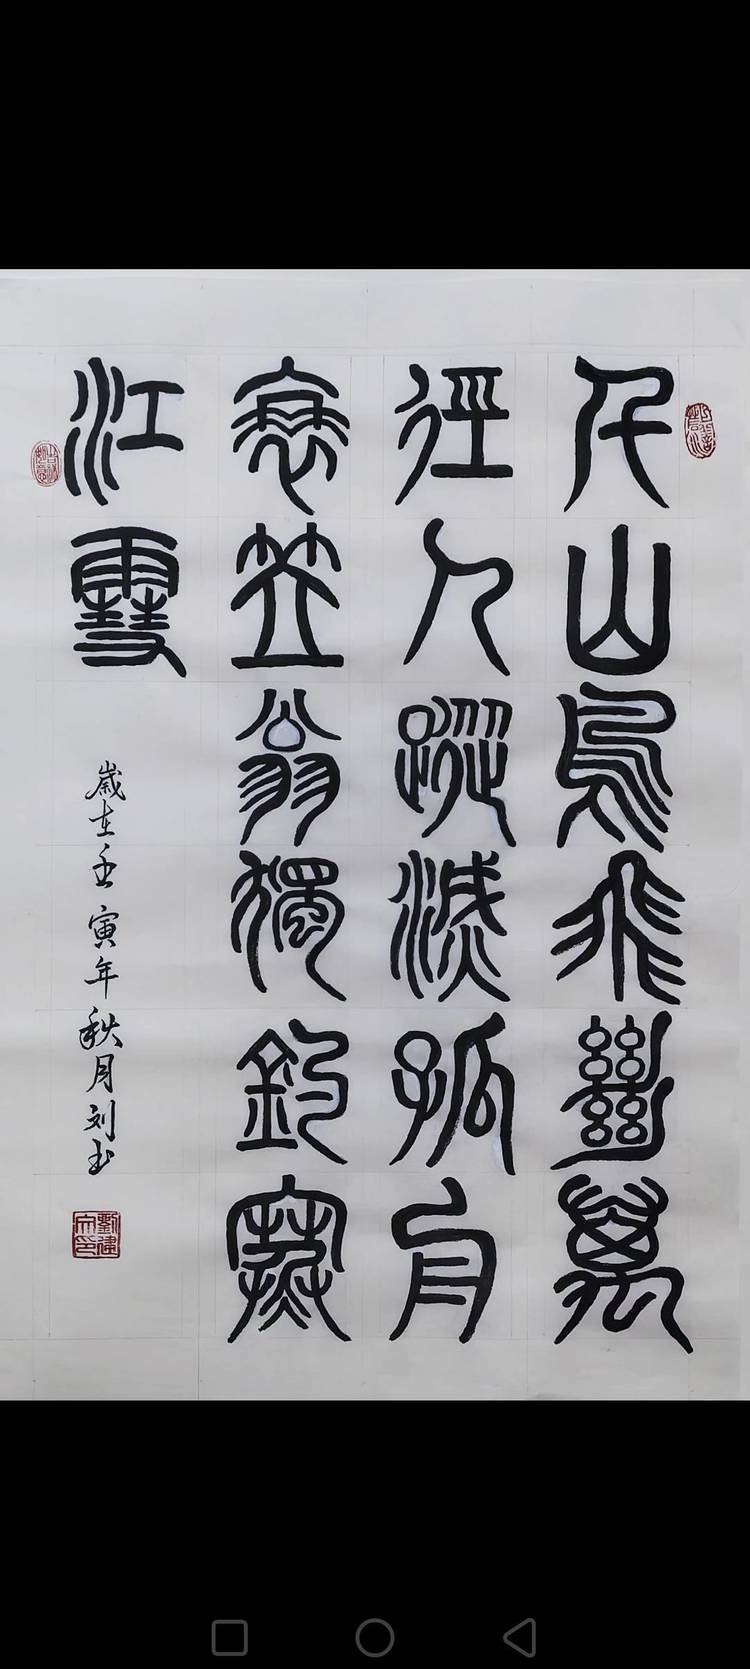 千山鳥飛絕萬
徑人蹤滅孤舟
衰笠翁獨釣寒
江雪
歲在壬寅年秋月刘玉